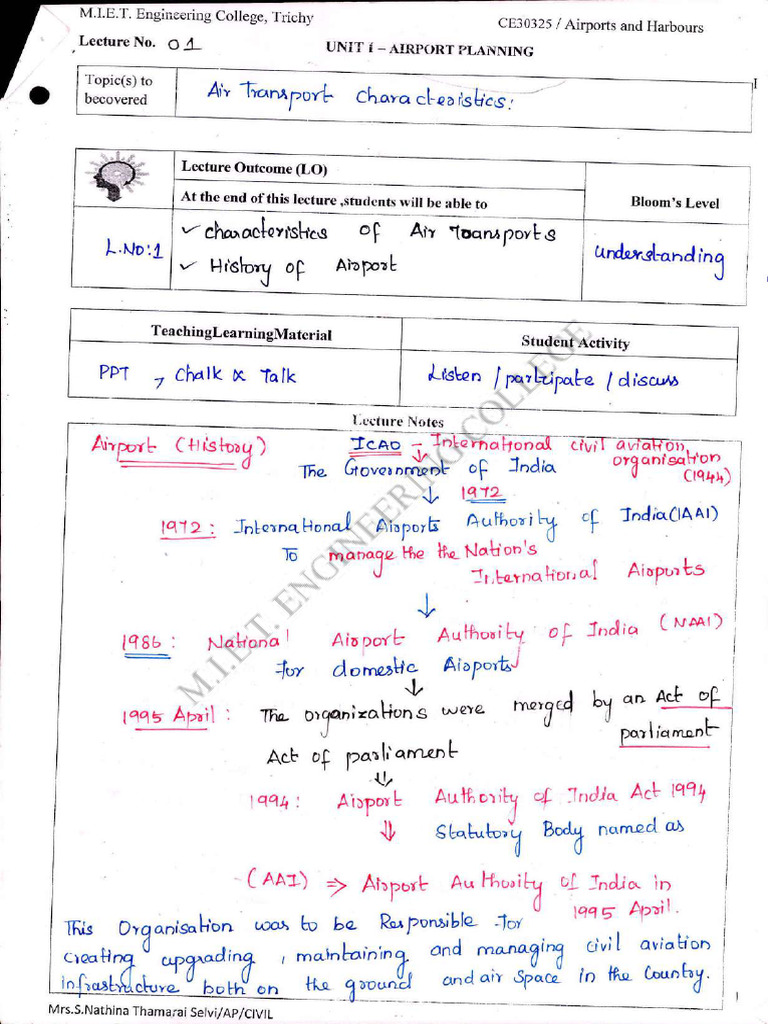 M.I.E.T. Engineering College, Trichy
CE30325 / Airports and Harbours
Lecture No. 01
UNIT I – AIRPORT PLANNING
Topic(s) to becovered
Air Transport Characteristics:
Lecture Outcome (LO)
At the end of this lecture ,students will be able to
Bloom's Level
L.NO:1
✓ characteristics of Air Transports
✓ History of Airport
Understanding
TeachingLearningMaterial
Student Activity
PPT , Chalk & Talk
Listen / partcipate / discuss
Lecture Notes
Airport (History)
ICAO – International civil aviation
organisation
(1944)
↓
The Government of India
↓ 1972
1972 : International Airports Authority of India(IAAI)
To manage the the Nation's
International Airports
↓
1986 : National Airport Authority of India (NAAI)
for domestic Airports
↓
1995 April : The organizations were merged by an Act of
parliament
Act of parliament
⇓
1994 : Airport Authority of India Act 1994
⇓ Statutory Body named as
(AAI) ⇒ Airport Authority of India in
1995 April.
This Organisation was to be Responsible for
creating upgrading , maintaining and managing civil aviation
infrastructure both on the ground and air Space in the Country.
Mrs.S.Nathina Thamarai Selvi/AP/CIVIL
1
M.I.E.T. ENGINEERING COLLEGE